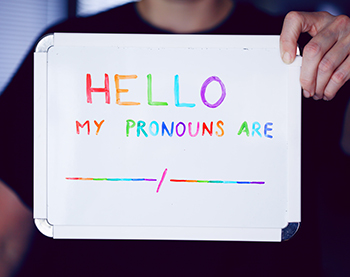 HELLO
MY PRONOUNS ARE
___/___